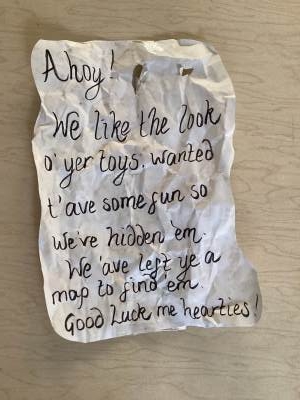 Ahoy!
We like the look
o' yer toys. wanted
t'ave some fun so
we've hidden 'em.
We 'ave left ye a
map to find 'em.
Good Luck me hearties!